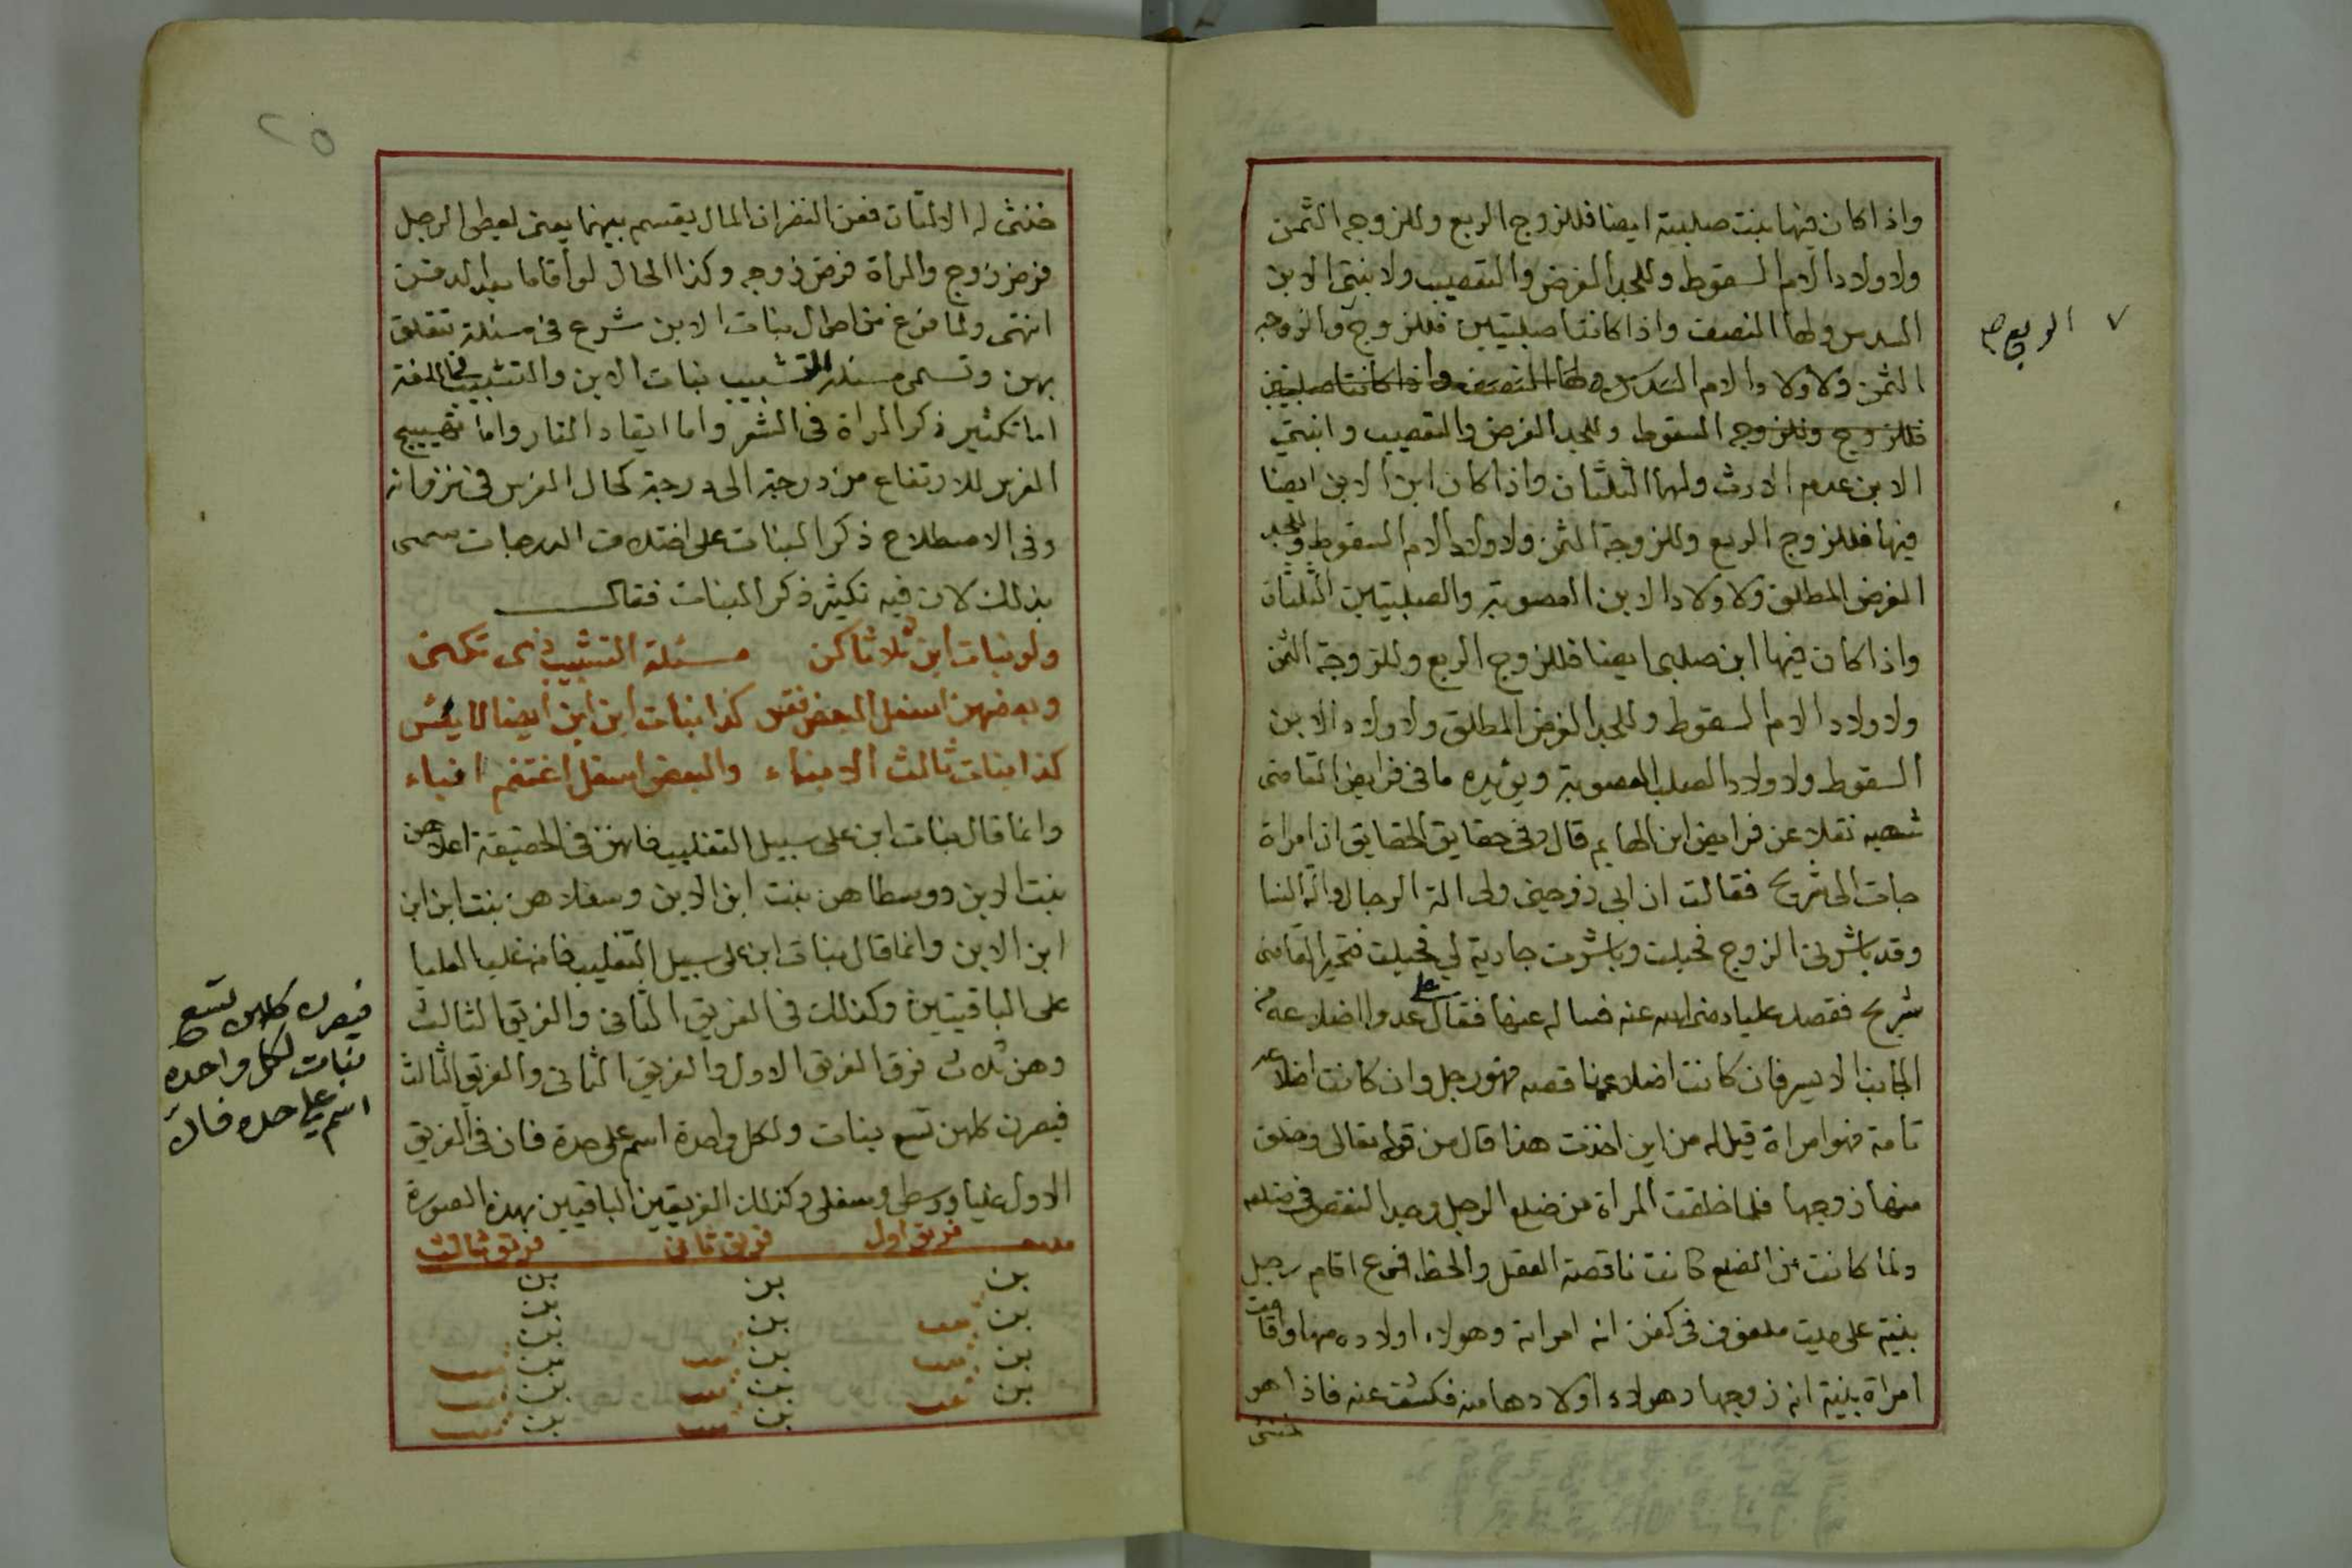 واذا كان فيها بنت صلبية ايضا فللزوج الربع وللزوجه الثمن
ولاولاد الام السقوط وللجد الفرض والتعصيب ولابنتى الابن
السدس ولها النصف واذا كانتا صلبيتين فللزوج والزوجه
الثمن ولاولاد الام السدس ولها النصف واذا كانتا صلبيتين
فللزوج وللزوجه السقوط وللجد الفرض والتعصيب وابنتي
الابن عدم الارث ولهما الثلثان واذا كان ابن الابن ايضا
فيها فللزوج الربع وللزوجة الثمن ولاولاد الام السقوط وللجد
الفرض المطلق ولاولاد الابن العصوبة والصلبيتين الثلثان
واذا كان فيها ابن صلبى ايضا فللزوج الربع وللزوجة الثمن
ولاولاد الام السقوط وللجد الفرض المطلق ولاولاد الابن
السقوط ولاولاد الصلب العصوبة ويؤيده ما فى فرايض القاضى
شهبه نقلا عن فرايض ابن الهايم قال وفى حقايق الحقايق ان امراة
جات الى شريح فقالت ان ابى زوجنى ولى الة الرجال والة النسا
وقد باشرنى الزوج فحبلت وباشرت جارية لي فحبلت فتحير القاضى
شريح فقصد عليا رضى الله عنه فساله عنها فقال على عدوا اضلاعه من
الجانب الايسر فان كانت اضلاعه ناقصه فهو رجل وان كانت اضلاعه
تامة فهو امراة قيل له من اين اخذت هذا قال من قوله تعالى وخلق
منها زوجها فلما خلقت المراة من ضلع الرجل وجد النقص فى ضلعه
ولما كانت من الضلع كانت ناقصة العقل والحظ فرع اقام رجل
بنية على ميت ملفوف فى كفن انه امراته وهولاء اولاده منها واقامت
امراة بنية انه زوجها وهولاء اولادها منه فكشف عنه فاذا هو
خنثى
٧ الربع صح
٢٥
خنثى له الالتان فعن النص ان المال يقسم بينهما يعنى يعطى الرجل
فرض زوج والمراة فرض زوجه وكذا الحال لو اقاما بعد الدفن
انتهى ولما فرغ من احوال بنات الابن شرع فى مسئلة تتعلق
بهن وتسمى مسئلة التشبيب بنات الابن والتشبيب فى اللغة
اما تكثير ذكر المراة فى الشعر واما ايقاد النار واما تهييج
الفرس للارتفاع من درجة الى درجة كحال الفرس فى نزوانه
وفى الاصطلاح ذكر البنات على اختلاف الدرجات سمى
بذلك لان فيه تكثير ذكر البنات فقال
ولو بنات ابن ثلاثا كن مسئلة التشبيب ذى تكنى
وبعضهن اسفل البعض فقس كذا بنات ابن ابن ايضا لا يئس
كذا بنات ثالث الابناء والبعض اسفل اغتنم انباء
وانما قال بنات ابن على سبيل التغليب فانهن فى الحقيقة اعلاهن
بنت الابن ووسطاهن بنت ابن الابن وسفلاهن بنت ابن ابن
ابن الابن وانما قال بنات ابن على سبيل التغليب فانه غلب العليا
على الباقيتين وكذلك فى الفريق الثانى والفريق الثالث
وهن ثلاث فرق الفريق الاول والفريق الثانى والفريق الثالث
فيصرن كلهن تسع بنات ولكل واحدة اسم على حدة فان فى الفريق
الاول عليا ووسطى وسفلى وكذلك الفريقين الباقيين بهذه الصورة
فريق اول فريق ثانى فريق ثالث
بن بن بن
بن بنت بن بن
بن بنت بن بنت بن
بن بنت بن بنت بن بنت
بن بنت بن بنت
بن بنت
فيصرن كلهن تسع
بنات لكل واحده
اسم على حده فان